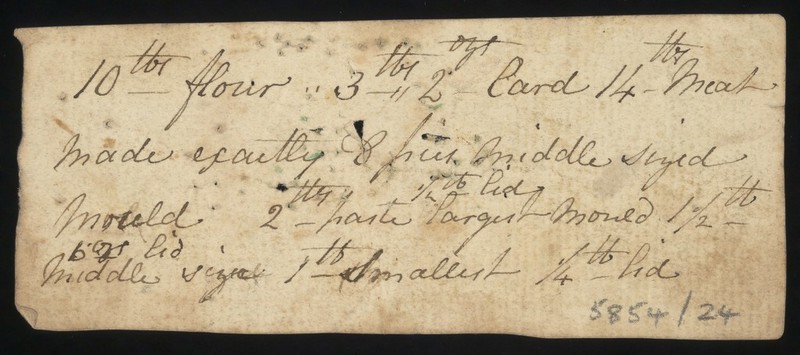 10 lbs flour " 3 lbs " 2 ozs Lard 14 lbs Meat
Made exactly 8 pies Middle sized
½ lb lid
Mould 2 lbs paste largest Mould 1½ lb
ozs lid
Middle size 1 lb Smallest ¼ lb lid
5854/24